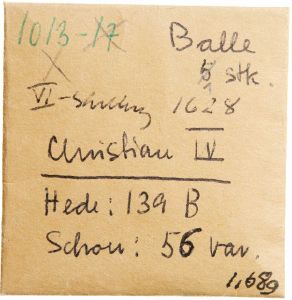 1013-17 Balle
5 stk.
VI-Skilling 1628
Christian IV
Hede: 139 B
Schou: 56 var.
1,689